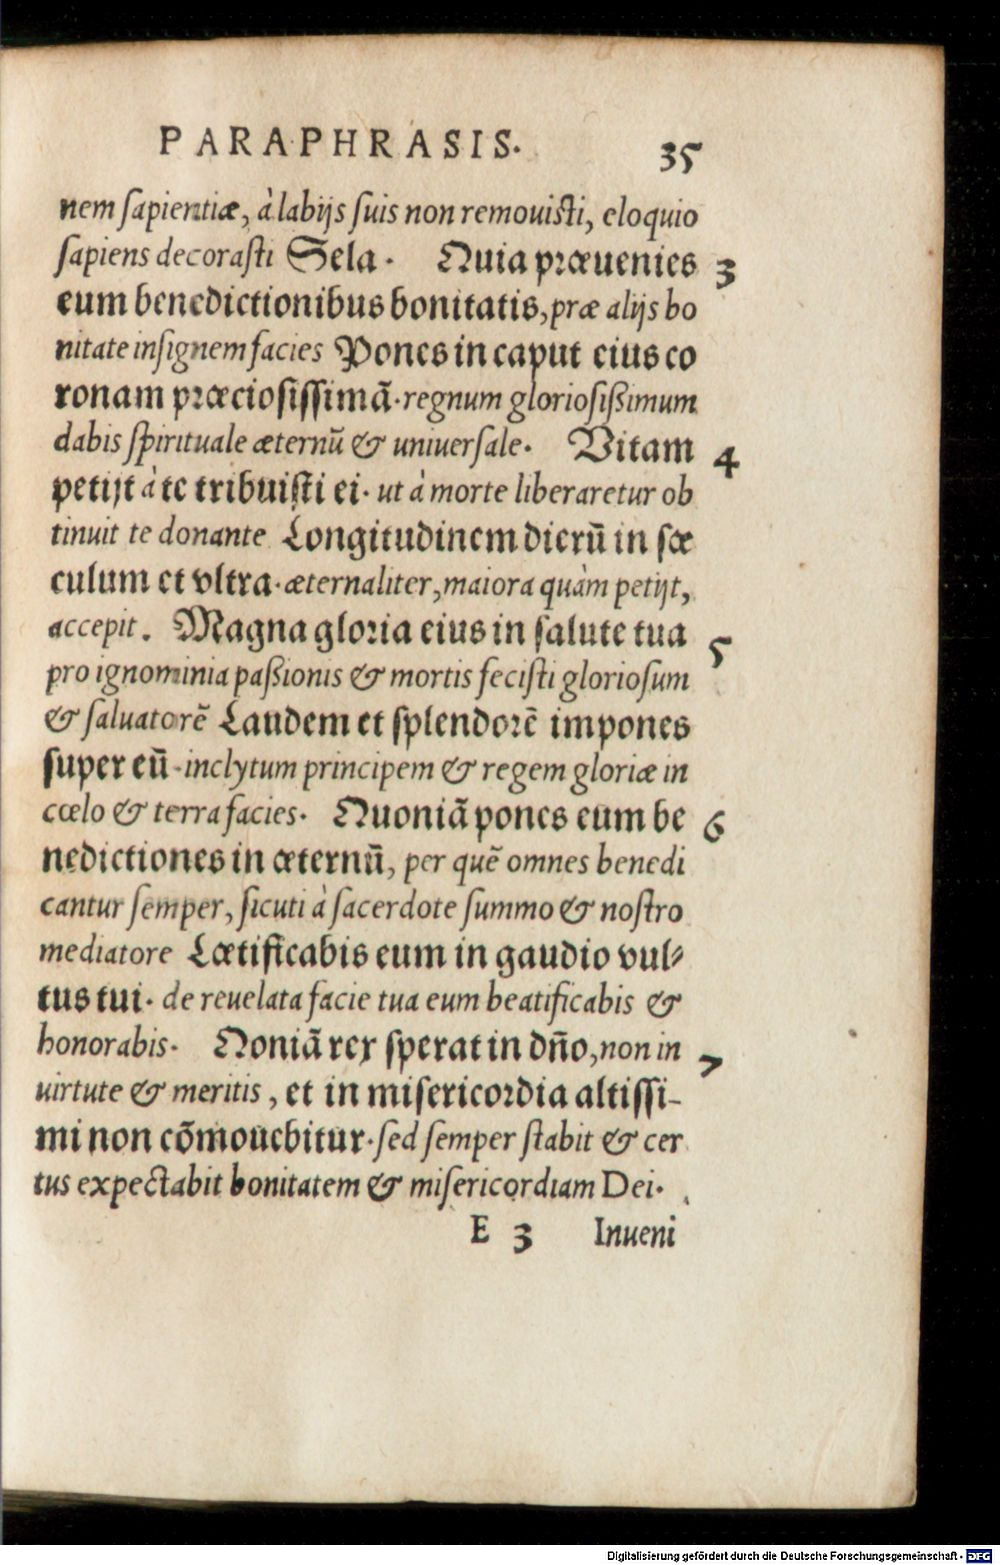 PARAPHRASIS. 35
nem sapientiæ, à labijs suis non remouisti, eloquio
sapiens decorasti Sela. Quia præuenies 3
eum benedictionibus bonitatis, præ alijs bo
nitate insignem facies Pones in caput eius co
ronam præciosissimā. regnum gloriosißimum
dabis spirituale æternū & uniuersale. Vitam 4
petijt à te tribuisti ei. ut á morte liberaretur ob
tinuit te donante Longitudinem dierū in sæ
culum et vltra. æternaliter, maiora quàm petijt,
accepit. Magna gloria eius in salute tua 5
pro ignominia paßionis & mortis fecisti gloriosum
& saluatorē Laudem et splendorē impones
super eū. inclytum principem & regem gloriæ in
cœlo & terra facies. Quoniā pones eum be 6
nedictiones in æternū, per quē omnes benedi
cantur semper, sicuti à sacerdote summo & nostro
mediatore Lætificabis eum in gaudio vul⸗
tus tui. de reuelata facie tua eum beatificabis &
honorabis. Qoniā rex sperat in dño, non in 7
uirtute & meritis, et in misericordia altissi-
mi non cōmouebitur. sed semper stabit & cer
tus expectabit bonitatem & misericordiam Dei.
E 3 Inueni
Digitalisierung gefördert durch die Deutsche Forschungsgemeinschaft - DFG